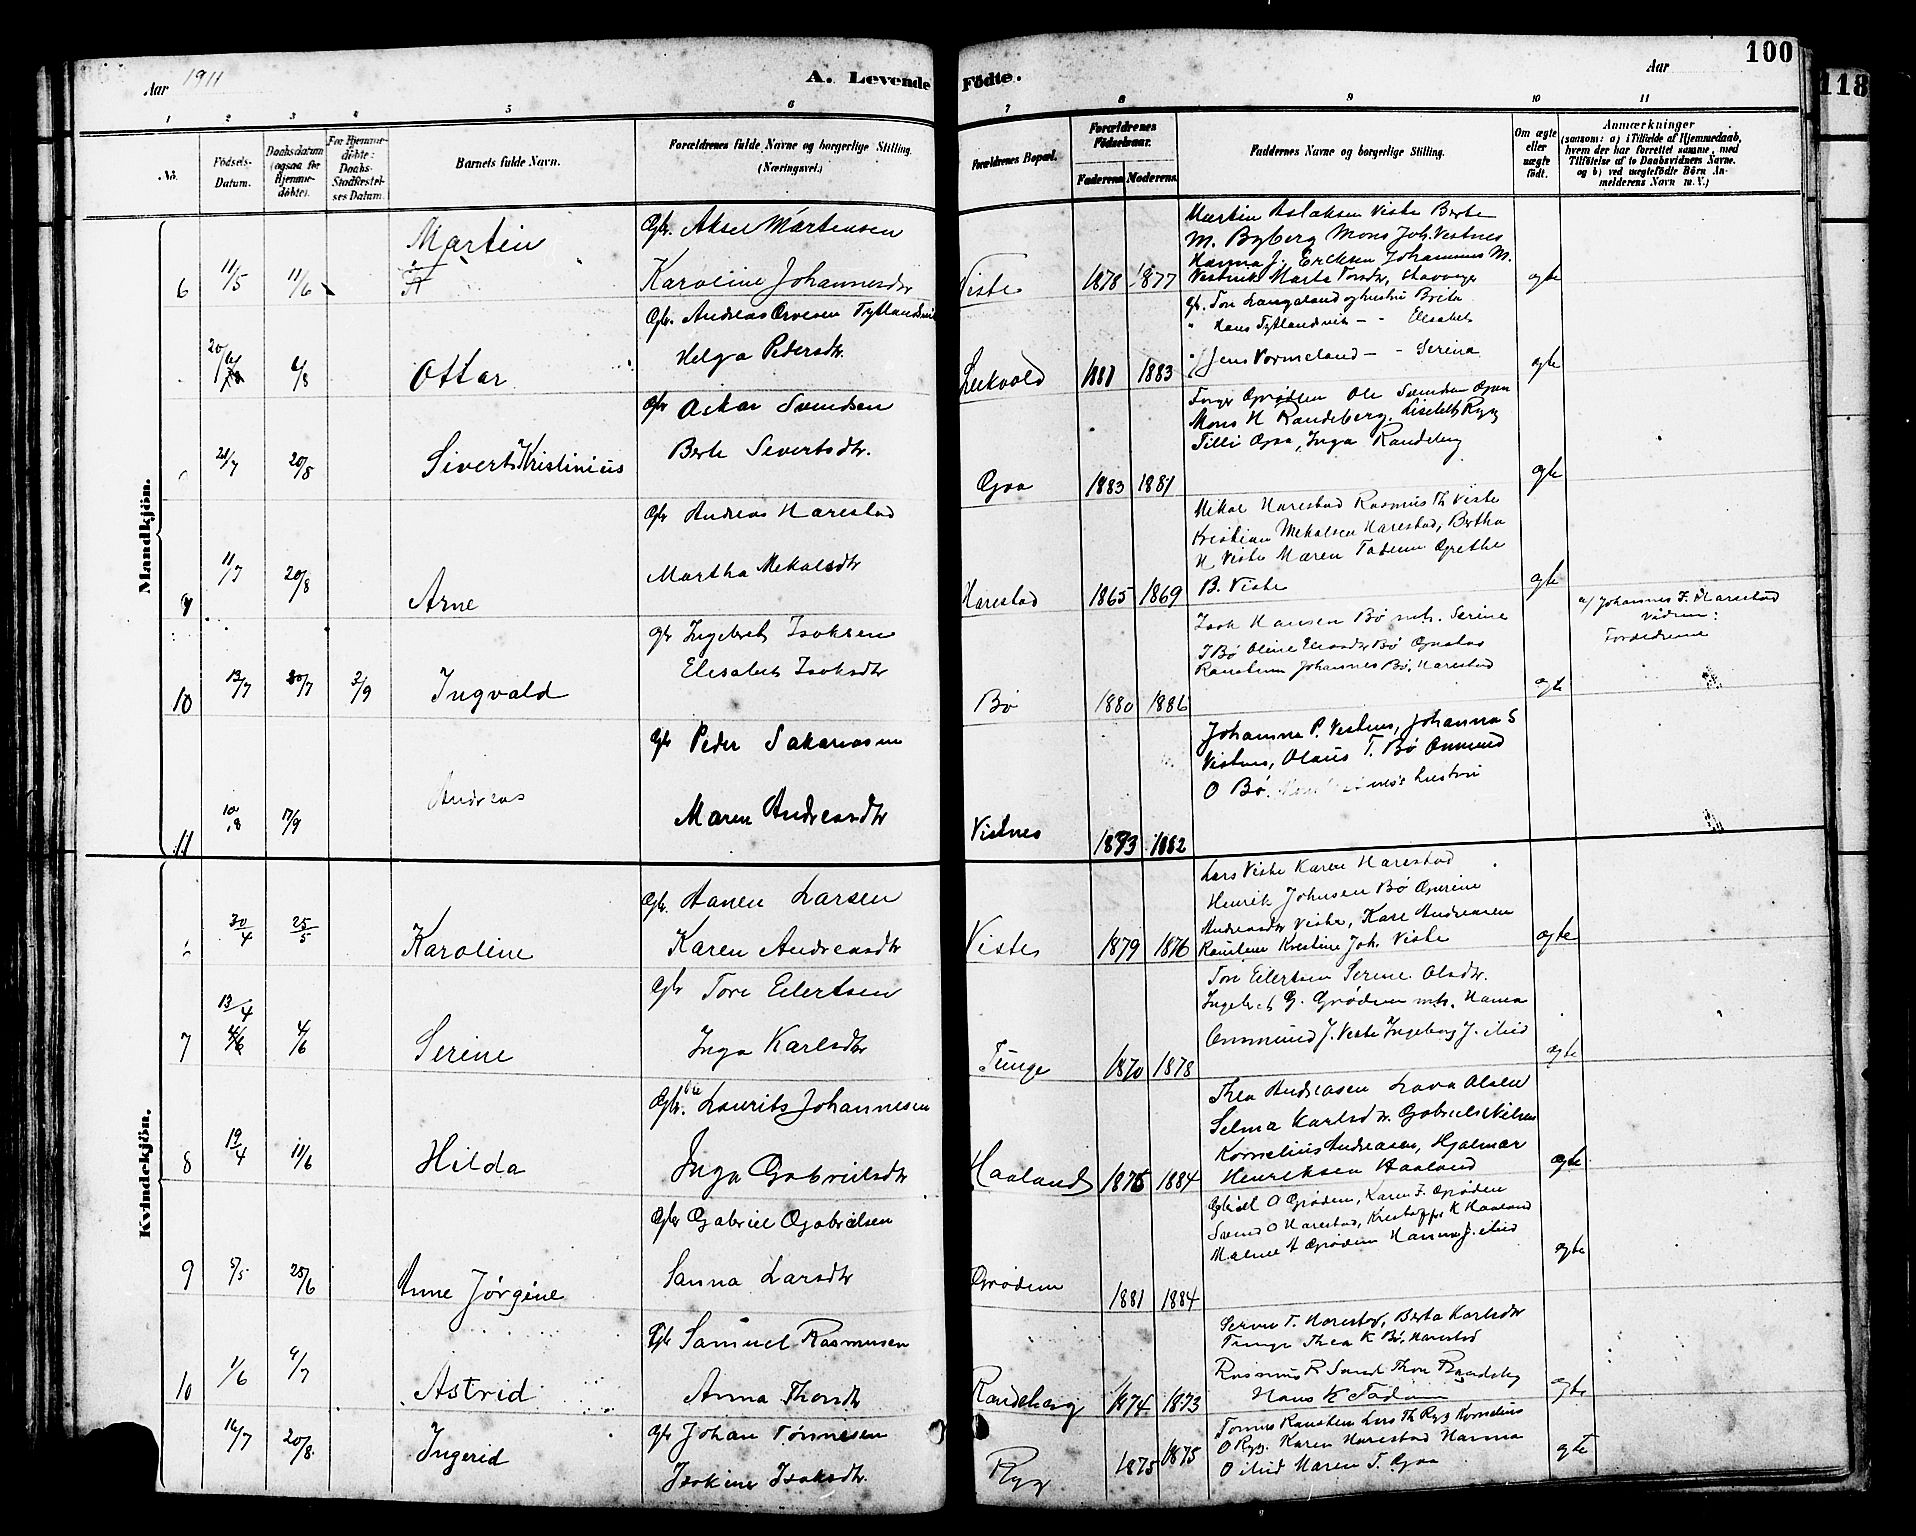 100
118
Aar 1911
A. Levende Födte.
Aar
1 2 3 4 5 6 7 8 9 10 11
No.
Födsels-Datum.
Daabsdatum (ogsaa for Hjemmedöbte).
For Hjemmedöbte: Daabs-Stadfæstelses Datum.
Barnets fulde Navn.
Forældrenes fulde Navne og borgerlige Stilling. (Næringsvei.)
Forældrenes Bopæl.
Forældrenes Födselsaar.
Faderens Moderens
Faddernes Navne og borgerlige Stilling.
Om ægte eller uægte födt.
Anmærkninger
(saasom: a) i Tilfælde af Hjemmedaab, hvem der har forrettet samme, med Tilföielse af to Daabsvidners Navne. og b) ved uægtefödte Börn Anmelderens Navn m. V.)
Mandkjön.
6 11/5 11/6 Martin
Gbr. Aksel Martensen
Karoline Johannesdtr
Viste 1878 1877
Martin Aslaksen Viste Berte
M. Byberg Mons Joh. Vestnes
Hanna J. Eriksen Johannes M.
Marta Stavanger
ægte
20/6 6/8 Ottar
Gbr. Andreas Tytlandsvik
Helga Pedersdtr.
Leikvold 1881 1883
Gb. Tore Langeland og hustru Brita
" Hans Tytlandsvik - - Elisabet
" Jens Vormeland - - Serina
ægte
21/7 20/8 Sivert Kristinius
Gbr Oskar Svendsen
Berte Sivertsdtr.
Goa 1883 1881
Ole Svendsen Goa
Mons H Randeberg, Lisabeth Ryg
Tilli Goa, Inga Randeberg
ægte
9 11/7 20/8 Arne
Gbr Andreas Harestad
Martha Mekalsdtr
Harestad 1865 1869
Mikal Harestad Rasmus Th Viste
Kristian Mekalsen Harestad, Bertha
H Viste Maren Todnem Grethe
B. Viste
ægte
10 13/7 30/7 3/9 Ingvald
Gbr Ingebret Isaksen
Elisabet Isaksdtr
Bø 1880 1886
Isak Hansen Bø Serine
I Bø Oline Bø Gustav
Johannes Bø, Harestad
ægte
a/ Johannes F. Harestad
Vidner:
Forældrene
11 10/8 17/9 Andreas
Gbr Peder Sakariasen
Maren Andreasdtr
Vistnes 1883 1882
Johanna P. Vistnes, Johanna S
Vistnes, Olaus T. Bø Ommund
O Bø. hustru
Kvindekjön.
30/4 25/5 Karoline
Gbr. Hanen Larsen
Karen Andreasdtr
Viste 1879 1876
Lars Viste Karen Harestad
Henrik Johnsen Bø
Andreasdtr Viste, Kare Andreasen
Krestine Joh. Viste
ægte
7 13/4 4/6 Serine
Gbr Tore Eilertsen
Inga Karlsdtr
Tunge 1870 1878
Tore Eilertsen Serine Olsdtr.
Ingebret G. Grødem Hanna
Ommund J. Viste Ingeborg J.
ægte
8 19/4 11/6 Hilda
Gbr. Ole Laurits Johannesen
Inga Gabrielsdtr
Haaland 1876 1884
Thea Andreasen Lava Olsen
Selma Karlsdtr. Gabriel Nilsen
Kornelius Andreasen, Hjalmar
Henriksen Haaland
ægte
9 5/5 25/6 Anne Jørgine
Gbr Gabriel Gabrielsen
Sanna Larsdtr
Grødem 1881 1884
O Grødem, Karen F. Grødem
Svend O Harestad, K Haaland
Malene A Grødem Hanna J.
ægte
10 1/6 9/7 Astrid
Gbr Samuel Rasmusen
Anna Thorsdtr
Randeberg 1874 1873
T. Harestad, Berta Karlsdtr
Tunge Thea K Bø, Harestad
Rasmus R Sand Thor Randeberg
Hans K Todnem
ægte
16/7 20/8 Ingerid
Gbr Johan Tønnesen
Isakine Isaksdtr.
Ryg 1875 1875
Tønnes Lars Th Ryg Kornelius
O Ryg. Karen Harestad Hanna
O Maren T. Goa
ægte